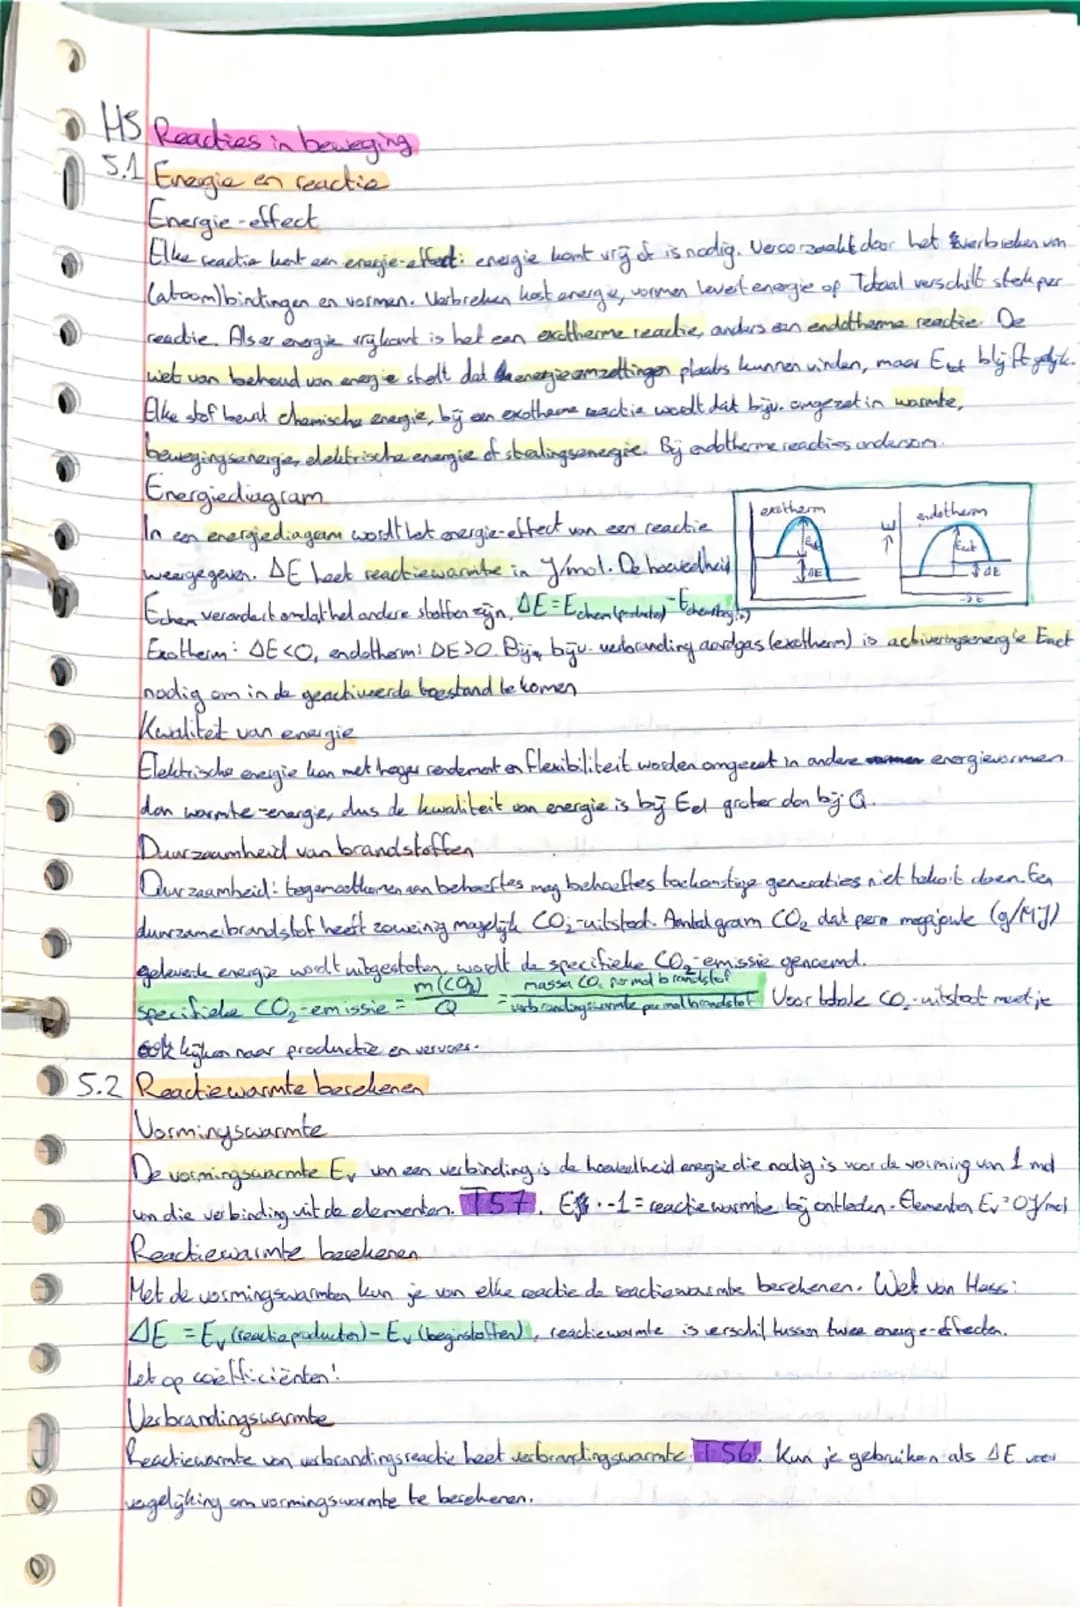 H5 Reacties in beweging
5.1 Energie en reactie
Energie-effect
Elke reactie kent een energie-effect: energie komt vrij of is nodig. Veroorzaakt door het verbreken van
(atoom)bindingen en vormen. Verbreken kost energie, vormen levert energie op. Totaal verschilt sterk per
reactie. Als er energie vrijkomt is het een exotherme reactie, anders een endotherme reactie. De
wet van behoud van energie stelt dat energieomzettingen plaats kunnen vinden, maar Etot blijft gelijk.
Elke stof bevat chemische energie, bij een exotherme reactie wordt dat bijv. omgezet in warmte,
bewegingsenergie, elektrische energie of stralingsenergie. Bij endotherme reacties andersom.
Energiediagram
In een energiediagram wordt het energie-effect van een reactie
weergegeven. ΔE heet reactiewarmte in J/mol. De hoeveelheid
Echem verandert omdat het andere stoffen zijn. ΔE = Echem(producten) - Echem(begin)
exotherm
Eact
ΔE
E
endotherm
Eact
ΔE
→t
Exotherm: ΔE<0, endotherm: ΔE>0. Bij bijv. verbranding aardgas (exotherm) is activeringsenergie Eact
nodig om in de geactiveerde toestand te komen
Kwaliteit van energie
Elektrische energie kan met hoger rendement en flexibiliteit worden omgezet in andere energievormen
dan warmte-energie, dus de kwaliteit van energie is bij Eel groter dan bij Q.
Duurzaamheid van brandstoffen
Duurzaamheid: tegemoetkomen aan behoeftes mag behoeftes toekomstige generaties niet tekort doen. Een
duurzame brandstof heeft zo weinig mogelijk CO2-uitstoot. Aantal gram CO2 dat per megajoule (g/MJ)
geleverde energie wordt uitgestoten, wordt de specifieke CO2-emissie genoemd.
specifieke CO2-emissie = m(CO2)/Q = massa CO2 per mol brandstof/verbrandingswarmte per mol brandstof Voor totale CO2-uitstoot moet je
ook kijken naar productie en vervoer.
5.2 Reactiewarmte berekenen
Vormingswarmte
De vormingswarmte Ev van een verbinding is de hoeveelheid energie die nodig is voor de vorming van 1 mol
van die verbinding uit de elementen. T57. Ev · -1 = reactiewarmte bij ontleden. Elementen Ev = 0 J/mol
Reactiewarmte berekenen
Met de vormingswarmten kun je van elke reactie de reactiewarmte berekenen. Wet van Hess:
ΔE = Ev (reactieproducten) - Ev (beginstoffen), reactiewarmte is verschil tussen twee energie-effecten.
Let op coëfficiënten!
Verbrandingswarmte
Reactiewarmte van verbrandingsreactie heet verbrandingswarmte. T56. Kun je gebruiken als ΔE voor
vergelijking om vormingswarmte te berekenen.